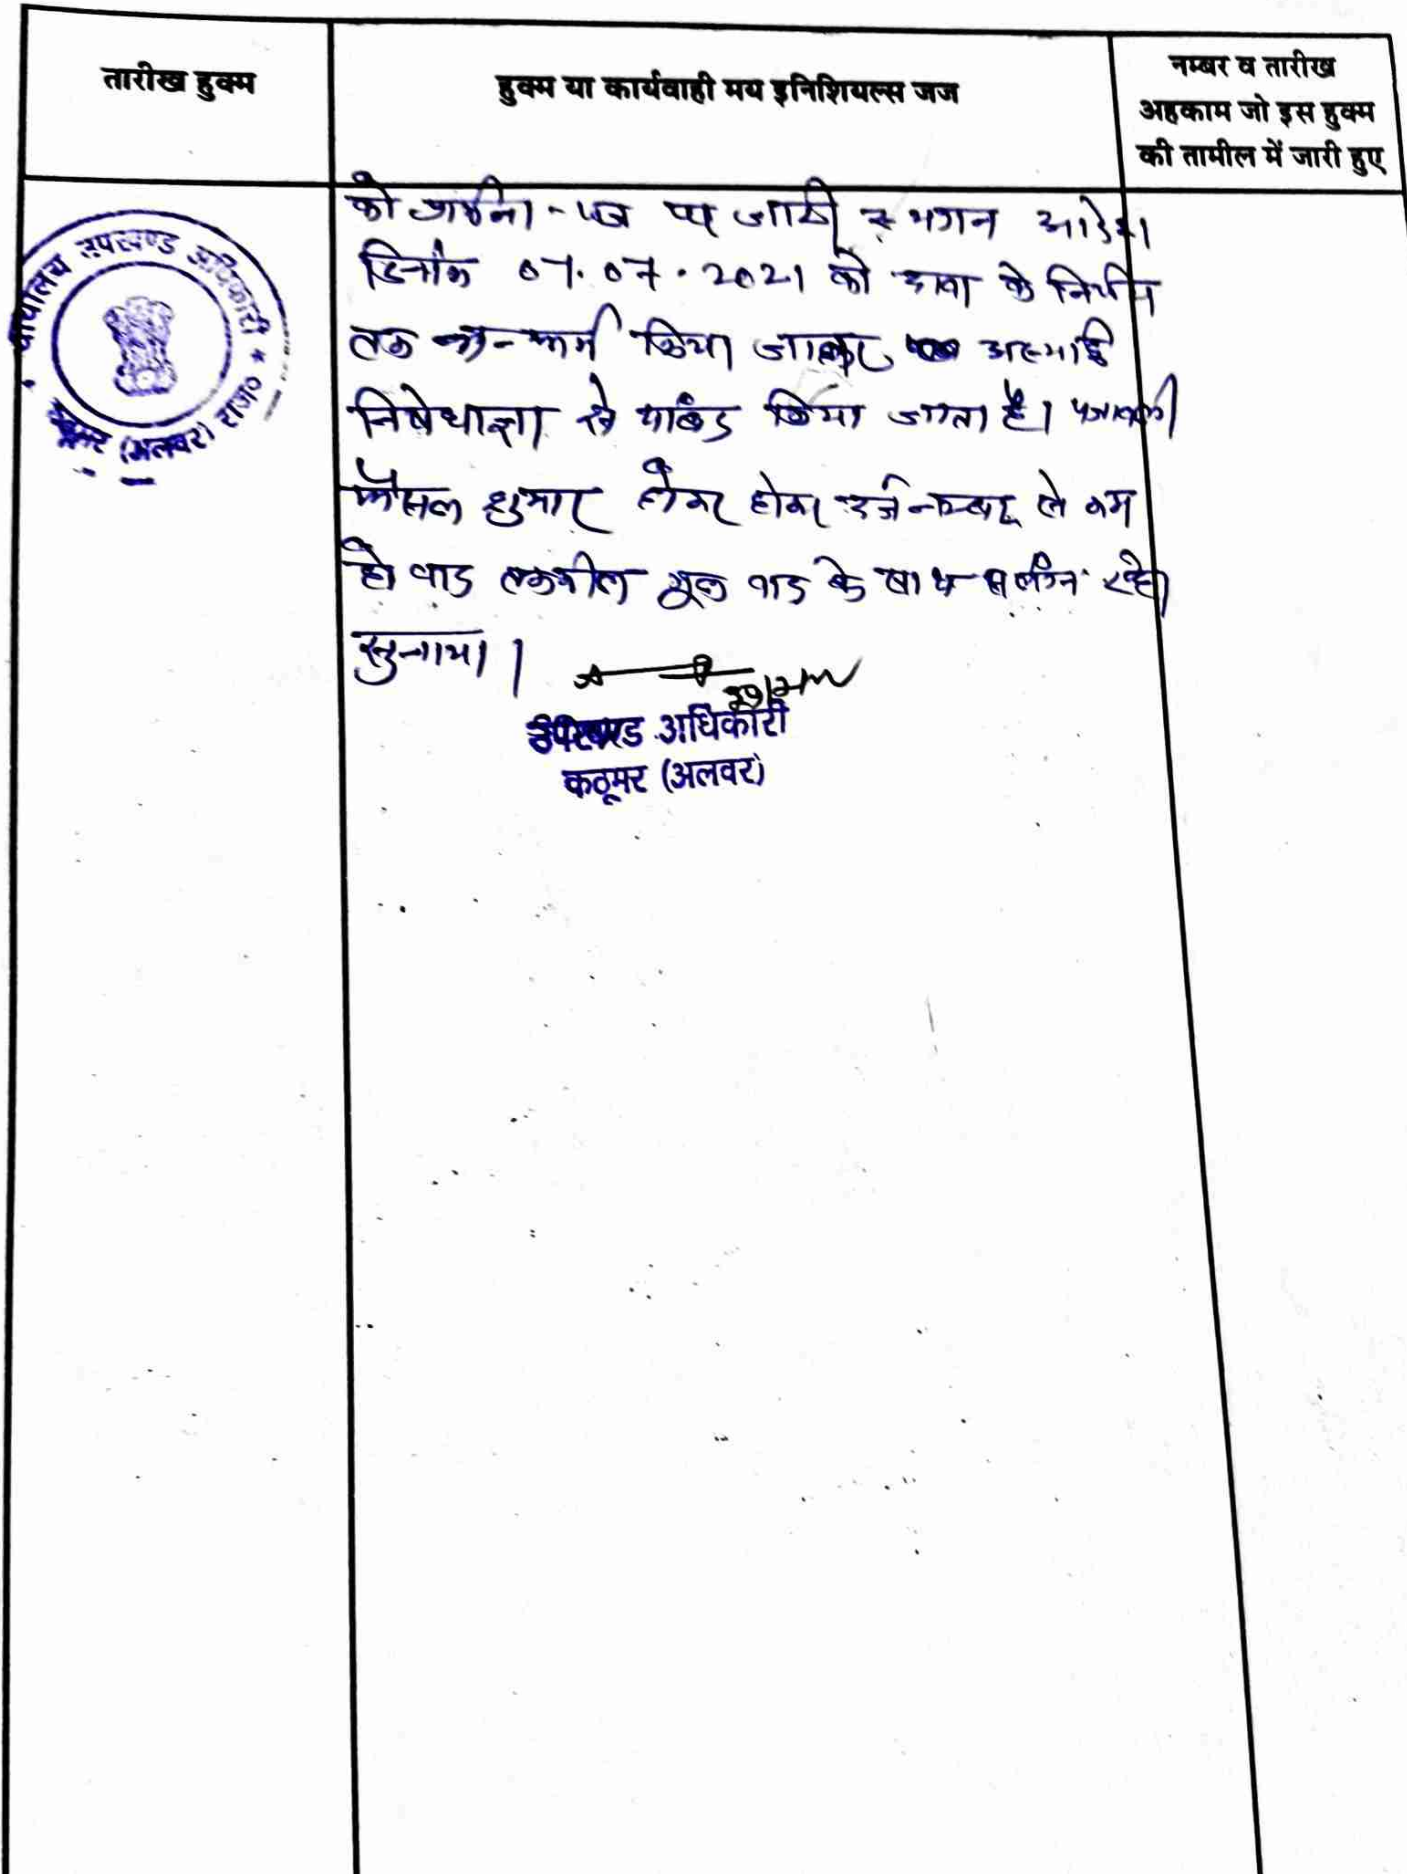 तारीख हुक्म
हुक्म या कार्यवाही मय इनिशियल्स जज
नम्बर व तारीख
अहकाम जो इस हुक्म
की तामील में जारी हुए
कार्यालय उपखण्ड अधिकारी * कठूमर (अलवर) राज०
को प्रार्थना-पत्र पर जारी स्थगन आदेश
दिनांक 07.07.2021 को दावा के निर्णय
तक कन्फर्म किया जाकर अस्थाई
निषेधाज्ञा से पाबंद किया जाता है। पत्रावली
फैसल शुमार होकर होकर दर्ज नम्बर से कम
हो बाद तकमील मूल वाद के साथ संलग्न रहे।
सुनाया।
उपखण्ड अधिकारी
कठूमर (अलवर)